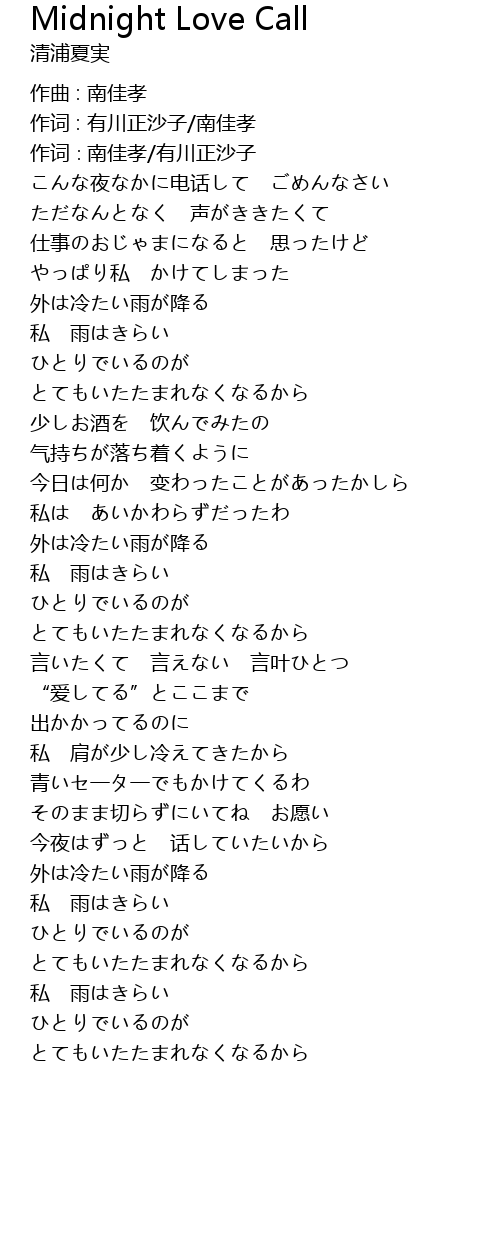 Midnight Love Call
清浦夏実
作曲 : 南佳孝
作词 : 有川正沙子/南佳孝
作词 : 南佳孝/有川正沙子
こんな夜なかに电话して　ごめんなさい
ただなんとなく　声がききたくて
仕事のおじゃまになると　思ったけど
やっぱり私　かけてしまった
外は冷たい雨が降る
私　雨はきらい
ひとりでいるのが
とてもいたたまれなくなるから
少しお酒を　饮んでみたの
气持ちが落ち着くように
今日は何か　变わったことがあったかしら
私は　あいかわらずだったわ
外は冷たい雨が降る
私　雨はきらい
ひとりでいるのが
とてもいたたまれなくなるから
言いたくて　言えない　言叶ひとつ
“爱してる”とここまで
出かかってるのに
私　肩が少し冷えてきたから
青いセ―タ―でもかけてくるわ
そのまま切らずにいてね　お愿い
今夜はずっと　话していたいから
外は冷たい雨が降る
私　雨はきらい
ひとりでいるのが
とてもいたたまれなくなるから
私　雨はきらい
ひとりでいるのが
とてもいたたまれなくなるから